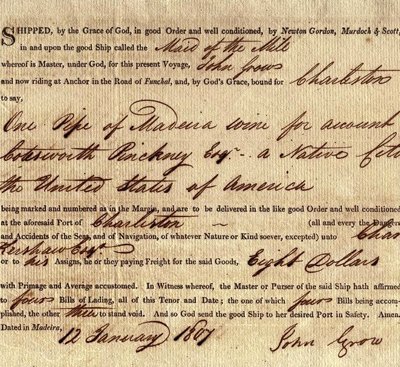 SHIPPED, by the Grace of God, in good Order and well conditioned, by Newton Gordon, Murdoch & Scott,
in and upon the good Ship called the Maid of the Mill
whereof is Master, under God, for this present Voyage, John Grows
and now riding at Anchor in the Road of Funchal, and, by God's Grace, bound for Charleston
to say,
One Pipe of Madeira wine for account
Cotesworth Pinckney Esqr. a Native Citi
the United States of America
being marked and numbered as in the Margin, and are to be delivered in the like good Order and well conditioned
at the aforesaid Port of Charleston (all and every the Dangers
and Accidents of the Seas, and of Navigation, of whatever Nature or Kind soever, excepted) unto Char
Kershaw Esqr.
or to his Assigns, he or they paying Freight for the said Goods, Eight Dollars
with Primage and Average accustomed. In Witness whereof, the Master or Purser of the said Ship hath affirmed
to four Bills of Lading, all of this Tenor and Date; the one of which four Bills being accom-
plished, the other three to stand void. And so God send the good Ship to her desired Port in Safety. Amen.
Dated in Madeira, 12 January 1807
John Grow